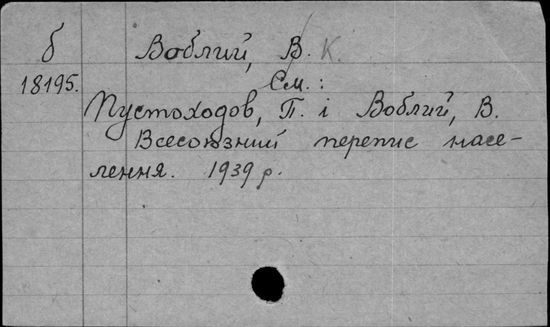 б Воблий, В. К.
18195. См.:
Пустоходов, П. і Воблий, В.
Всесоюзний перепис насе-
лення. 1939 р.